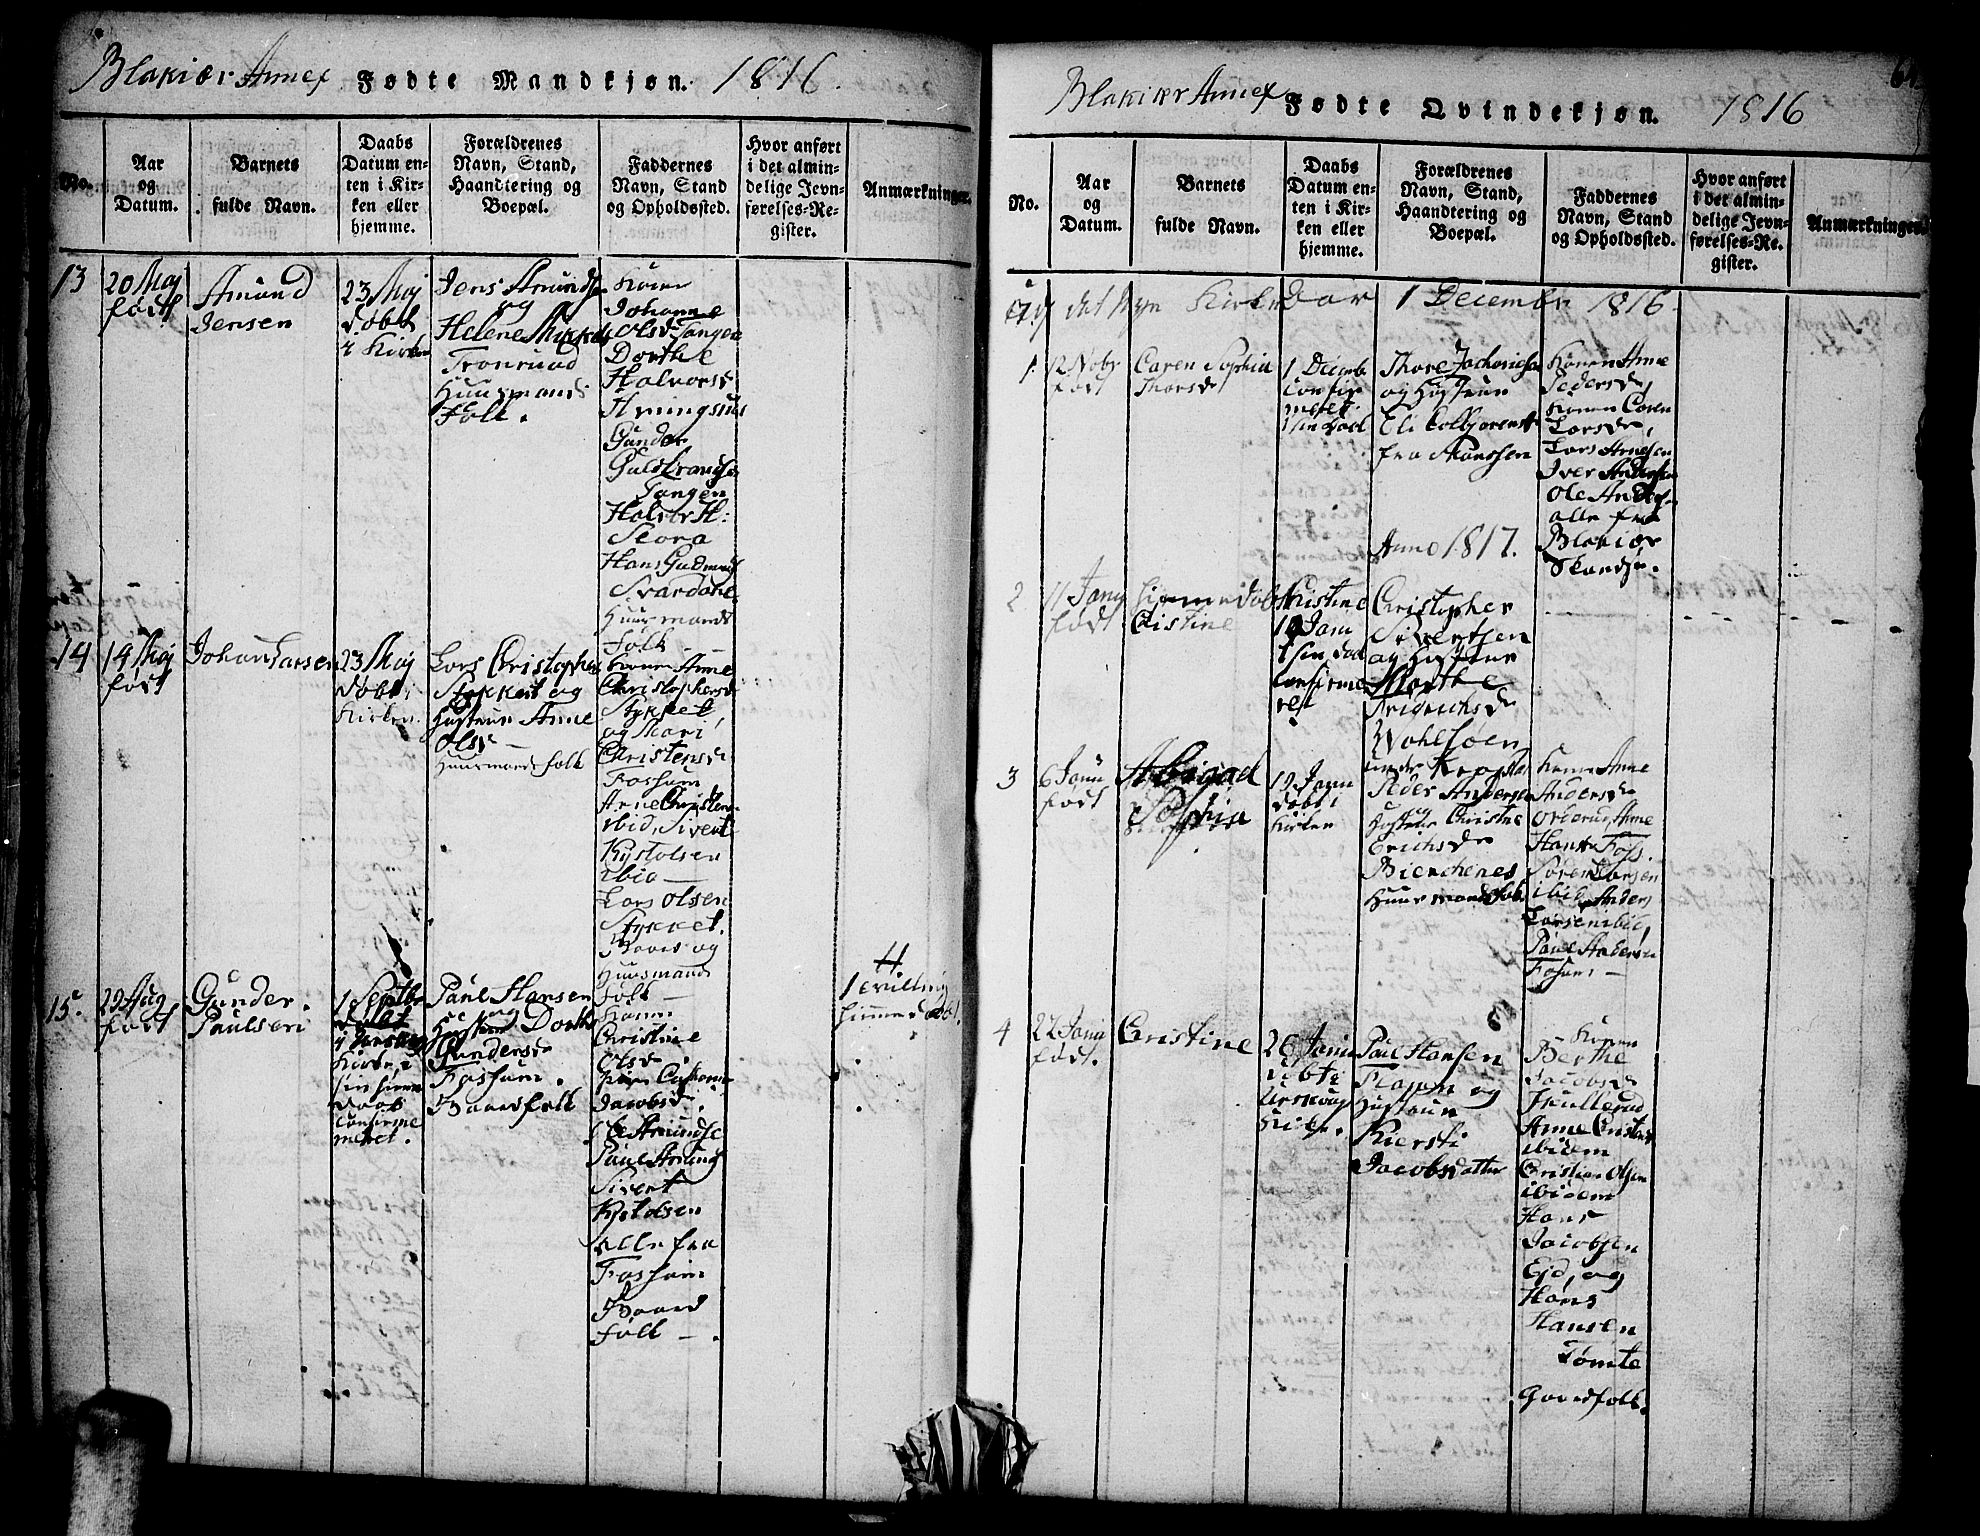 Blakiær Annex Fødte Mandkjøn. 1816.
No.
Aar
og
Datum.
Barnets
fulde Navn.
Daabs
Datum en-
ten i Kir-
ken eller
hjemme.
Forældrenes
Navn, Stand,
Haandtering og
Boepæl.
Faddernes
Navn, Stand
og Opholdssted.
Hvor anført
i det almin-
delige Jevn-
førelses-Re-
gister.
Anmærkninger.
13
20 Maj
født
Amund
Jensen
23 Maj
døbt
i Kirken
Jens Amunds
og
Helene Mikkels
Tronrud
Huusmands
Folk.
Konen
Johanne
Olsd. Tangen
Dorthe
Halvorsd
Gunder
Guldbrandsen
Tangen
Hans Gudmunds
Svardahl
Huusmands
Folk
14
19 Maj
født
Johan Larsen
23 Maj
døbt i
Kirken.
Lars Christophers
Stykket og
Hustrue Anne
Olsd
Huusmands folk
Konen Anne
Christophersd
Stykket,
og Mari
Christensd
Fossum
Arne Christens
ibid, Sivert
Kystolsen
ibid
Lars Olsen
Stykket.
Baards og
Huusmands
Folk
15.
29 Aug
født
Gunder
Paulsen
1 Septbr
i Urskoug
Kirke,
sin hieme
daab
confirme
meret.
Paul Hansen
og
Hustrue Dorthe
Gundersd
Fossum.
Gaardfolk
Konen
Christine
Olsd.
Jacobsd.
Ole Amundse
Paul Amunds
Sivert
Kystolsen
alle fra
Fossum
Gaard
folk
1 tvilling
hiemmedøbt.
Blakiær Annex Fødte Qvindekjøn. 1816
No.
Aar
og
Datum.
Barnets
fulde Navn.
Daabs
Datum en-
ten i Kir-
ken eller
hjemme.
Forældrenes
Navn, Stand,
Haandtering og
Boepæl.
Faddernes
Navn, Stand
og Opholdssted.
Hvor anført
i det almin-
delige Jevn-
førelses-Re-
gister.
Anmærkninger.
det Nye Kirke Aar 1 December 1816.
1.
12 Nobr
født
Caren Sophia
Thorsd
1 Decemb
confir
meret
sin daab
Thore Zachariesen
og Hustrue
Eli Colbjørnsd
fra Maurssen
Konen Anne
Pedersd,
Konen Caren
Larsd,
Lars Arnesen
Iver Andersen
Ole Anders
alle fra
Blakiær
Skandse.
Anno 1817.
2
11 Janu
født
hiemmedøbt
Christine
19 Janu
sin daab
confirme
ret
Christopher
Sivertsen
og Hustrue
Marthe
Fridrichsd
3
6 Janu
født
Abigael
Sophia
19 Janu
døbt i
Kirken
Peder Andersen
og
Hustrue Christine
Erichsd
Bierchenes
Huusmandsfolk
Konen Anne
Andersd
Orderud, Anne
Hansd Foss.
Søren Larsen
ibid, Anders
Larsen ibid,
Paul Andersen
Fossum
4
22 Janu
født.
Christine
26 Janu
døbt i
Urskoug
Kirke.
Paul Hansen
og
Hustrue
Kiersti
Jacobsdatter
Konen
Berthe
Jacobsd
Skullerud
Anne Christensd
ibidem
Christian Olsen
ibidem
Hans
Jacobsen
Ejd, og
Hans
Hansen
Tømte
Gaardfolk.